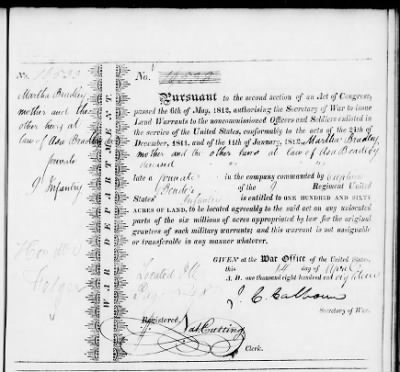 No.
Martha Bradley
mother and the
other heirs at
law of Asa Bradley
private
9 Infantry
WAR DEPARTMENT.
No.
Pursuant to the second section of an Act of Congress,
passed the 6th of May, 1812, authorising the Secretary of War to issue
Land Warrants to the noncommissioned Officers and Soldiers enlisted in
the service of the United States, conformably to the acts of the 24th of
December, 1811, and of the 11th of January, 1812, Martha Bradley
mother and the other heirs at law of Asa Bradley
deceased
late a private in the company commanded by Captain
of the 9 Regiment United
States' Infantry is entitled to ONE HUNDRED AND SIXTY
ACRES OF LAND, to be located agreeably to the said act on any unlocated
parts of the six millions of acres appropriated by law for the original
grantees of such military warrants; and this warrant is not assignable
or transferable in any manner whatever.
GIVEN at the War Office of the United States,
this day of April
A. D. one thousand eight hundred and eighteen
Located
J. C. Calhoun
Secretary of War.
Registered, Nat Cutting
Clerk.